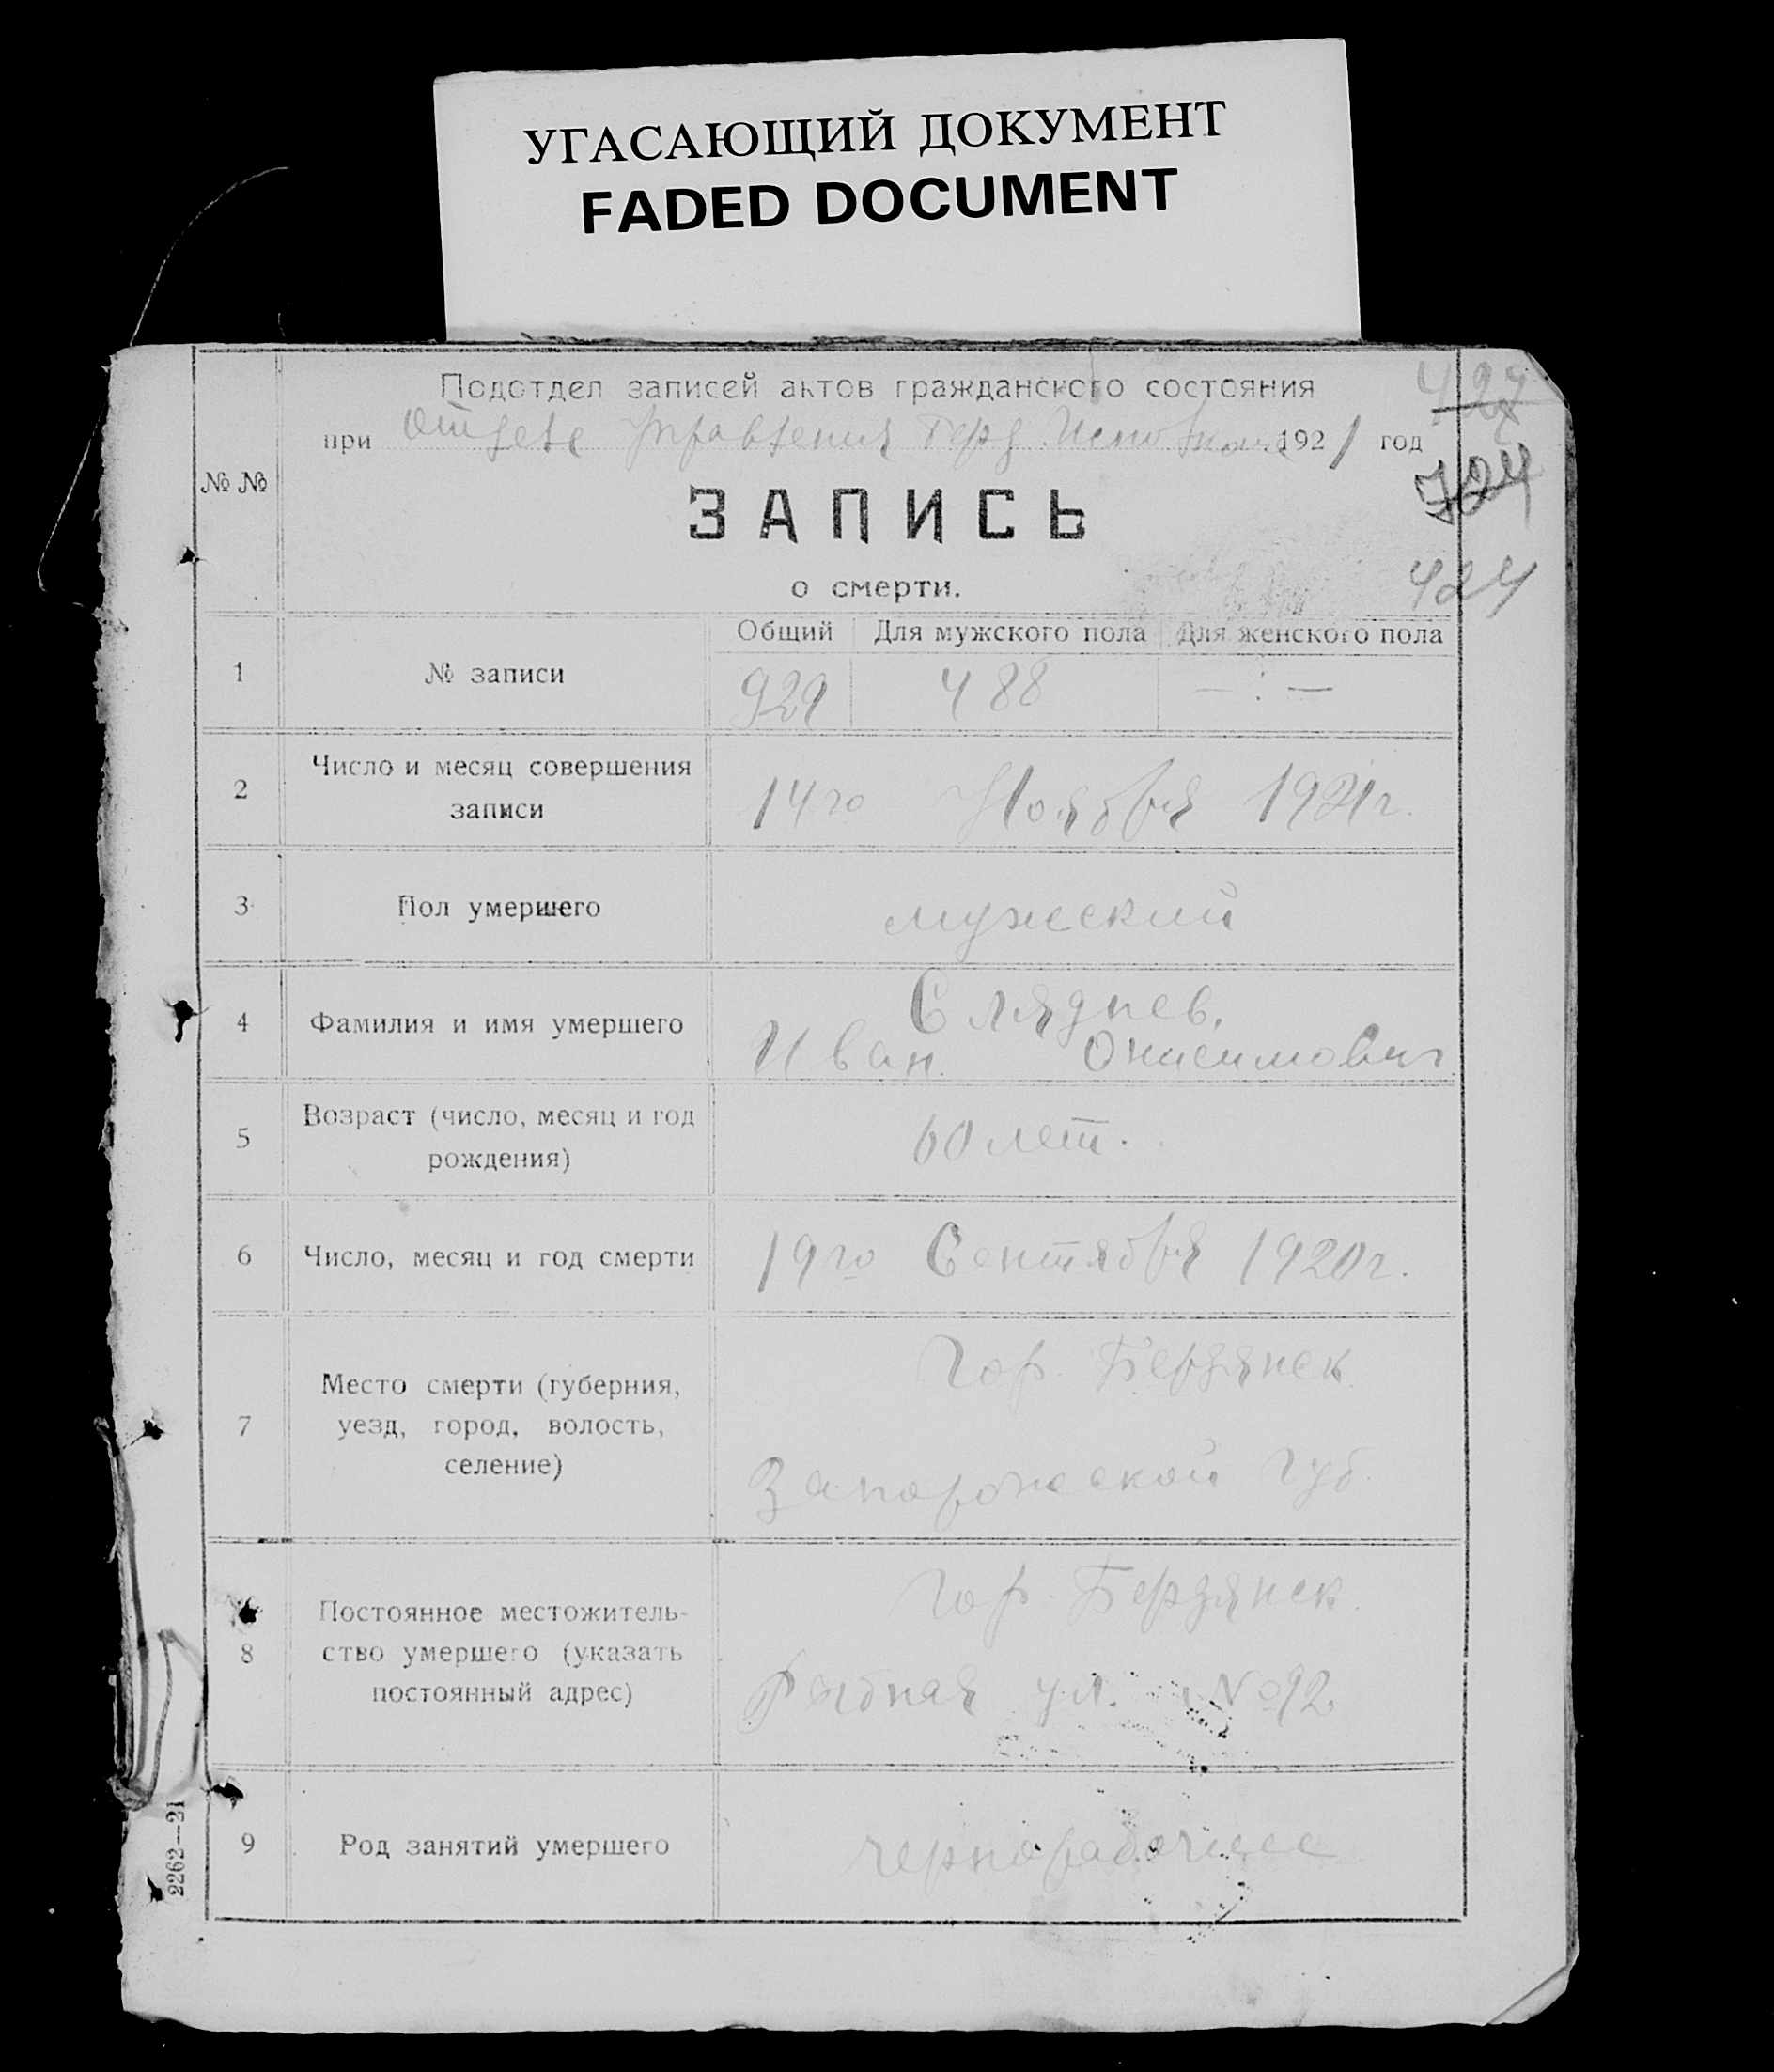 УГАСАЮЩИЙ ДОКУМЕНТ
FADED DOCUMENT
Подотдел записей актов гражданского состояния
при Отделе Управления Берд. 1921 год
427
724
424
№ №
ЗАПИСЬ
о смерти.
Общий Для мужского пола Для женского пола
1 № записи 929 488 — : —
2 Число и месяц совершения
записи 14го Ноября 1921г.
3 Пол умершего мужеский
4 Фамилия и имя умершего Сляднев,
Иван Онисимович
5 Возраст (число, месяц и год
рождения) 60 лет.
6 Число, месяц и год смерти 19го Сентября 1920г.
7 Место смерти (губерния,
уезд, город, волость,
селение) Гор. Бердянск
Запорожской Губ.
8 Постоянное местожитель-
ство умершего (указать
постоянный адрес) Гор. Бердянск.
Рыбная ул. № 92
9 Род занятий умершего чернорабочий
2262—21